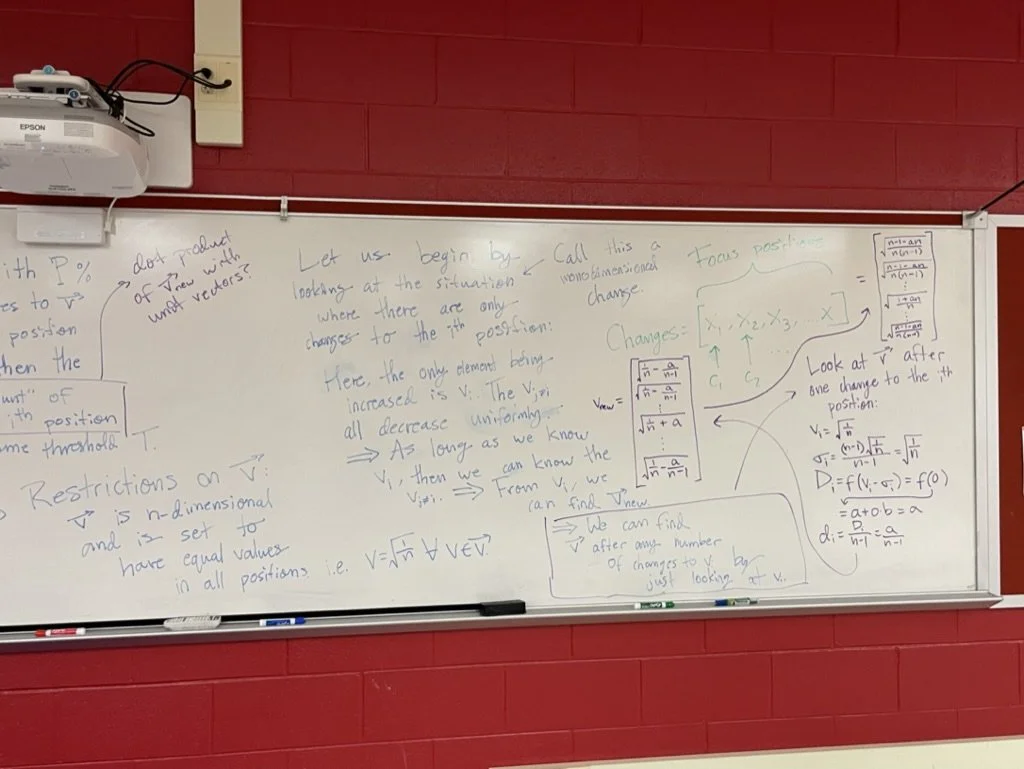 EPSON
ith P%
es to v⃗
position
hen the
unt" of
ith position
me threshold T.
dot product
of v⃗new with
unit vectors?
Restrictions on v⃗:
v⃗ is n-dimensional
and is set to
have equal values
in all positions i.e. V=√(1/n) ∀ V∈v⃗.
Let us begin by
looking at the situation
where there are only
changes to the ith position:
Here, the only element being
increased is Vi. The Vj≠i
all decrease uniformly.
⇒ As long as we know
Vi, then we can know the
Vj≠i. ⇒ From Vi, we
can find v⃗new.
⇒ We can find
v⃗ after any number
of changes to Vi by
just looking at Vi.
Call this a
monodimensional
change.
Focus positions
Changes=[X1, X2, X3, ... X]
↑ ↑
C1 C2 ...
Vnew=
√(1/n) - a/(n-1)
√(1/n) - a/(n-1)
⋮
√(1/n) + a
⋮
√(1/n) - a/(n-1)
=
⋮
⋮
Look at v⃗ after
one change to the ith
position:
Vi=√(1/n)
σi=(n-1)√(1/n)/(n-1)=√(1/n)
Di=f(Vi-σi)=f(0)
=a+0·b=a
di=Di/(n-1)=a/(n-1)